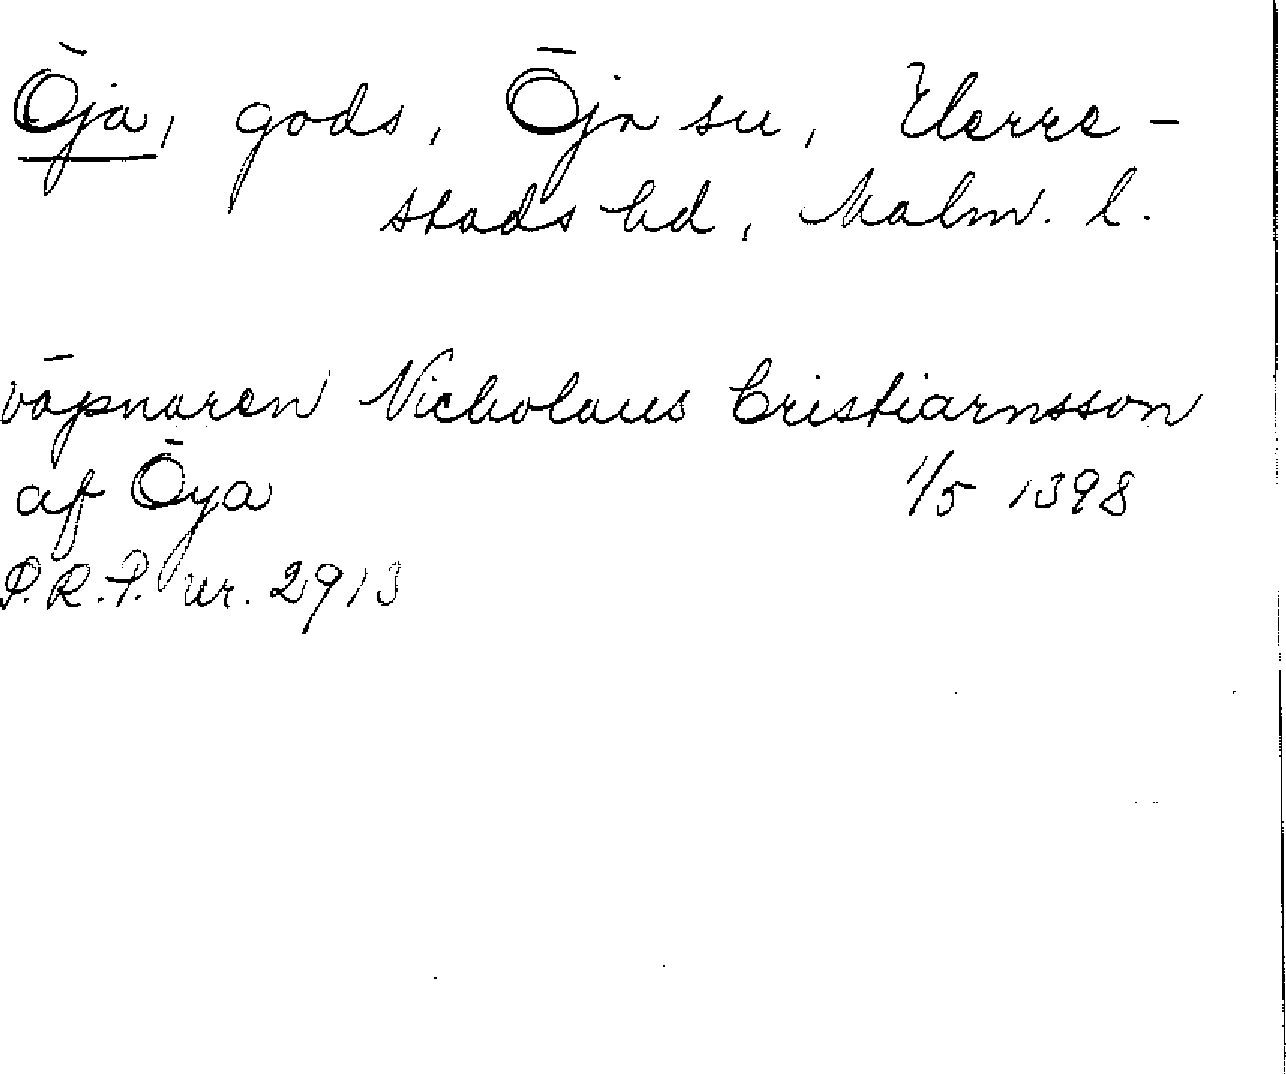 Öja, gods, Öja sn, Herre-
stads hd, Malm. l.
väpnaren Nicholaus Cristiarnsson
af Öya 1/5 1398
P.R.P. nr. 2913